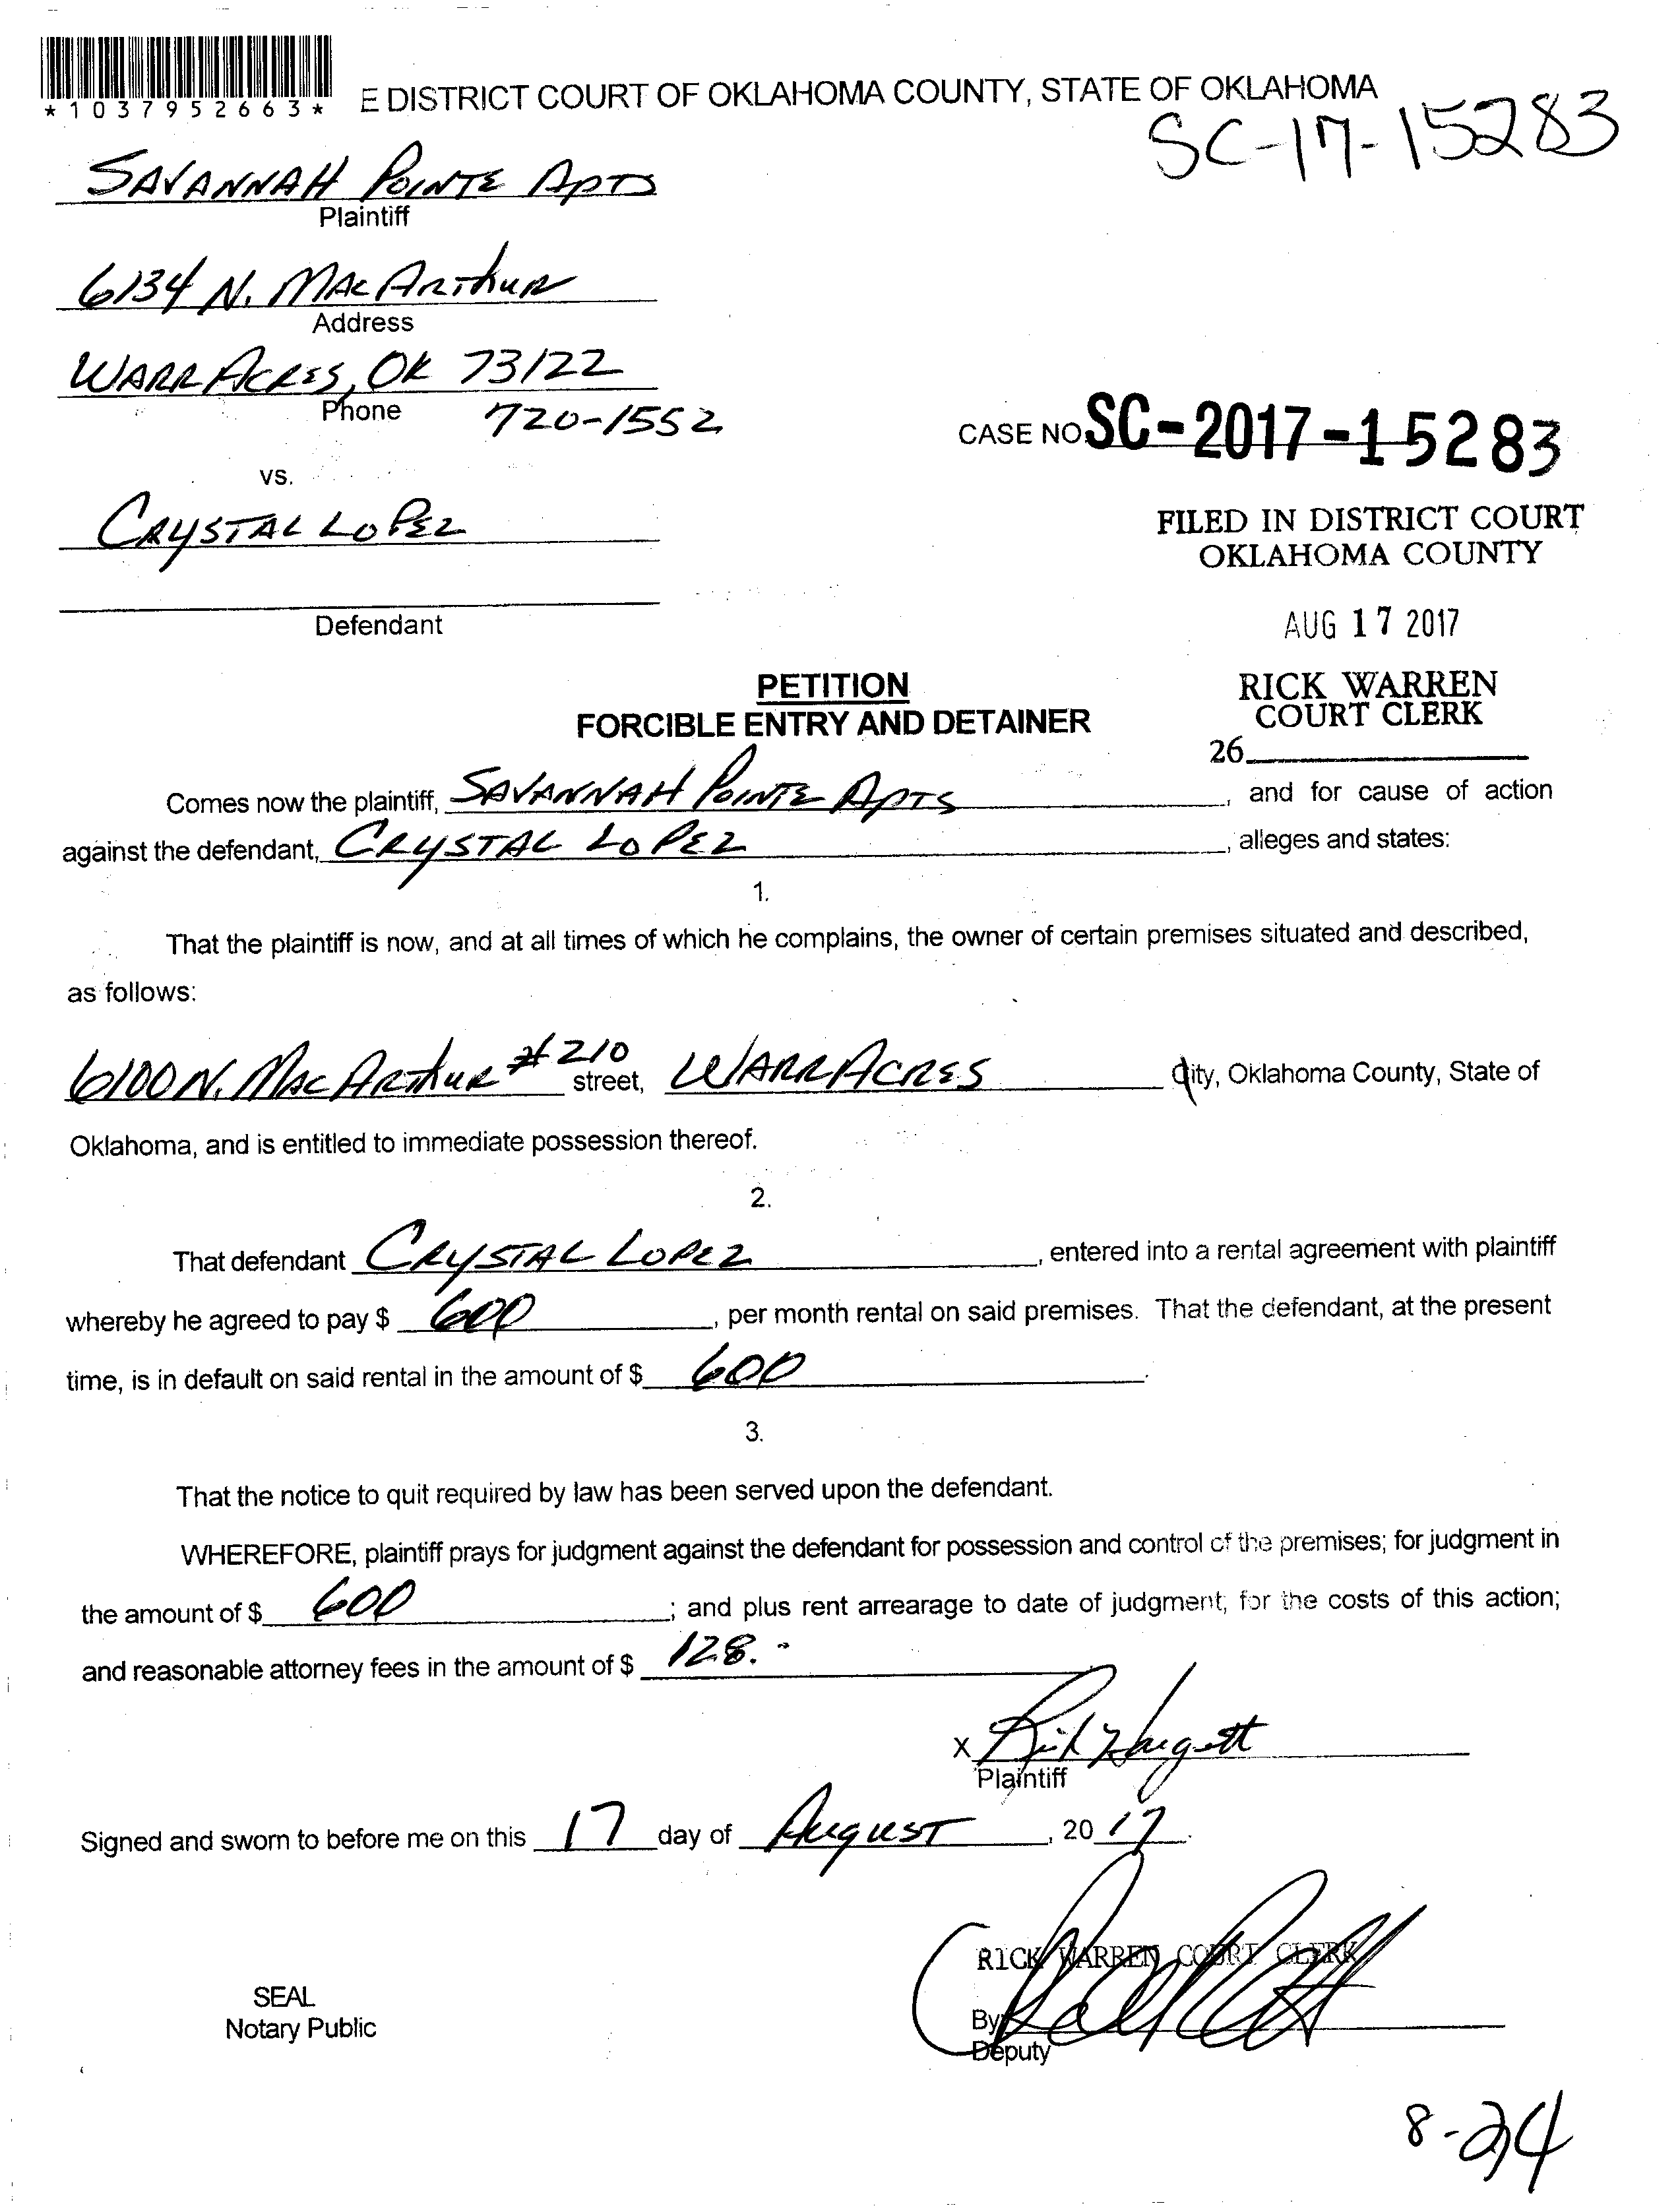 *1037952663*
E DISTRICT COURT OF OKLAHOMA COUNTY, STATE OF OKLAHOMA
SC-17-15283
SAVANNAH POINTE APTS
Plaintiff
6134 N. MACARTHUR
Address
WARR ACRES, OK 73122
Phone 720-1552
CASE NO. SC-2017-15283
vs.
CRYSTAL LOPEZ
FILED IN DISTRICT COURT
OKLAHOMA COUNTY
Defendant
AUG 17 2017
PETITION
FORCIBLE ENTRY AND DETAINER
RICK WARREN
COURT CLERK
26
Comes now the plaintiff, SAVANNAH POINTE APTS, and for cause of action
against the defendant, CRYSTAL LOPEZ, alleges and states:
1.
That the plaintiff is now, and at all times of which he complains, the owner of certain premises situated and described,
as follows:
6100 N. MACARTHUR #210 street, WARR ACRES City, Oklahoma County, State of
Oklahoma, and is entitled to immediate possession thereof.
2.
That defendant CRYSTAL LOPEZ, entered into a rental agreement with plaintiff
whereby he agreed to pay $ 600, per month rental on said premises. That the defendant, at the present
time, is in default on said rental in the amount of $ 600.
3.
That the notice to quit required by law has been served upon the defendant.
WHEREFORE, plaintiff prays for judgment against the defendant for possession and control of the premises; for judgment in
the amount of $ 600; and plus rent arrearage to date of judgment; for the costs of this action;
and reasonable attorney fees in the amount of $ 128.-
X
Plaintiff
Signed and sworn to before me on this 17 day of AUGUST, 20 17.
RICK WARREN COURT CLERK
SEAL
Notary Public
By
Deputy
8-24